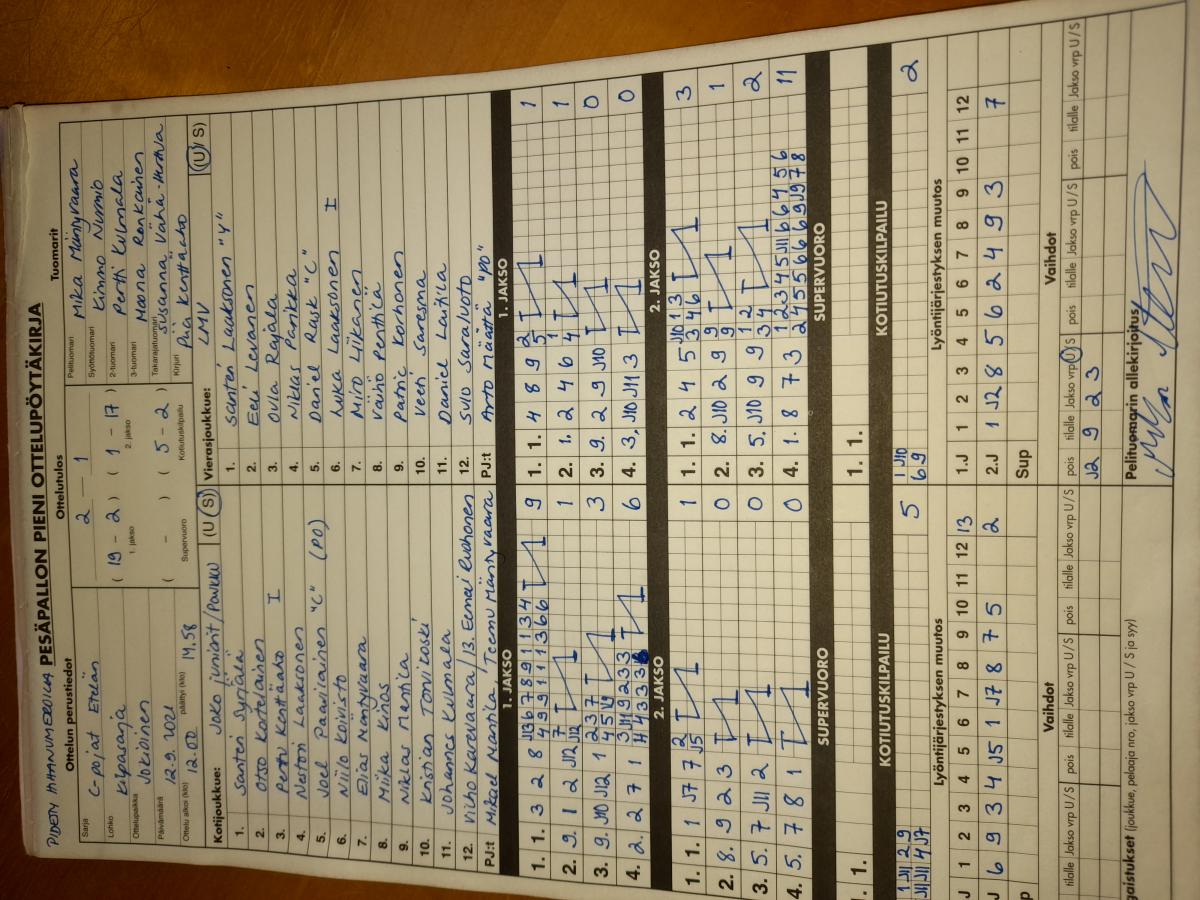 PIDETÄÄN IHANUMEROILLA PESÄPALLON PIENI OTTELUPÖYTÄKIRJA
Ottelun perustiedot
Sarja
C-pojat Etelän
Lohko
Kilpasarja
Ottelupaikka
Jokioinen
Päivämäärä
12.9.2021
Ottelu alkoi (klo) 12.00 päättyi (klo) 14.58
Ottelutulos
2 1
( 19 - 2 ) ( 1 - 17 )
1. jakso 2. jakso
( - ) ( 5 - 2 )
Supervuoro Kotiutuskilpailu
Tuomarit
Pelituomari Mika Mäntyvaara
Syöttötuomari Kimmo Nurmio
2-tuomari Pertti Kulmala
3-tuomari Moona Ronkainen
Takarajatuomari Susanna Vähä-Herttua
Kirjuri Piia Kenttäaho
Kotijoukkue: Joko juniorit/Ponkku (U/S)
1. Santeri Syrjälä
2. Otso Kortelainen
3. Perttu Kenttäaho I
4. Nestori Laaksonen
5. Joel Paavilainen "C" (PO)
6. Niilo Koivisto
7. Elias Mäntyvaara
8. Miika Kinos
9. Niklas Manttila
10. Kristian Torvikoski
11. Johannes Kulmala
12. Vilho Karevaara / 13. Eemeli Ruohonen
PJ:t Mikael Manttila, Teemu Mäntyvaara
Vierasjoukkue: LMV (U/S)
1. Santeri Laaksonen "Y"
2. Eeli Levanen
3. Ovla Rajala
4. Niklas Parikka
5. Daniel Rask "C"
6. Luka Laaksonen I
7. Miro Liikanen
8. Väinö Penttilä
9. Patric Korhonen
10. Veeti Saresma
11. Daniel Laitila
12. Sulo Saraluoto
PJ:t Arto Määttä "PO"
1. JAKSO
1. 1. 3 2 8 9
2. 9. 1 2 J12 1
3. 9. J10 J12 1 3
4. 2. 2 7 1 6
1. JAKSO
1. 1. 4 8 9 1
2. 1. 2 4 6 1
3. 9. 2 9 J10 0
4. 3. J10 J11 3 0
2. JAKSO
1. 1. 1 J7 7 1
2. 8. 9 2 3 0
3. 5. 7 J11 2 0
4. 5. 7 8 1 0
2. JAKSO
1. 1. 2 4 5 3
2. 8. J10 2 9 1
3. 5. J10 9 9 2
4. 1. 8 7 3 11
SUPERVUORO
1. 1.
SUPERVUORO
1. 1.
KOTIUTUSKILPAILU
1 J11 2 9
J11 J11 4 J7
5
KOTIUTUSKILPAILU
1 J10
6 9
2
Lyöntijärjestyksen muutos
J 1 2 3 4 5 6 7 8 9 10 11 12 13
J 6 9 3 4 J5 1 J7 8 7 5 2
up
Lyöntijärjestyksen muutos
1.J 1 2 3 4 5 6 7 8 9 10 11 12
2.J 1 J2 8 5 6 2 4 9 3 7
Sup
Vaihdot
tilalle Jakso vrp U/S pois tilalle Jakso vrp U/S pois tilalle Jakso vrp U/S
Vaihdot
pois tilalle Jakso vrp U/S pois tilalle Jakso vrp U/S pois tilalle Jakso vrp U/S
J2 9 2 3
gaistukset (joukkue, pelaaja nro, jakso vrp U / S ja syy)
Pelituomarin allekirjoitus